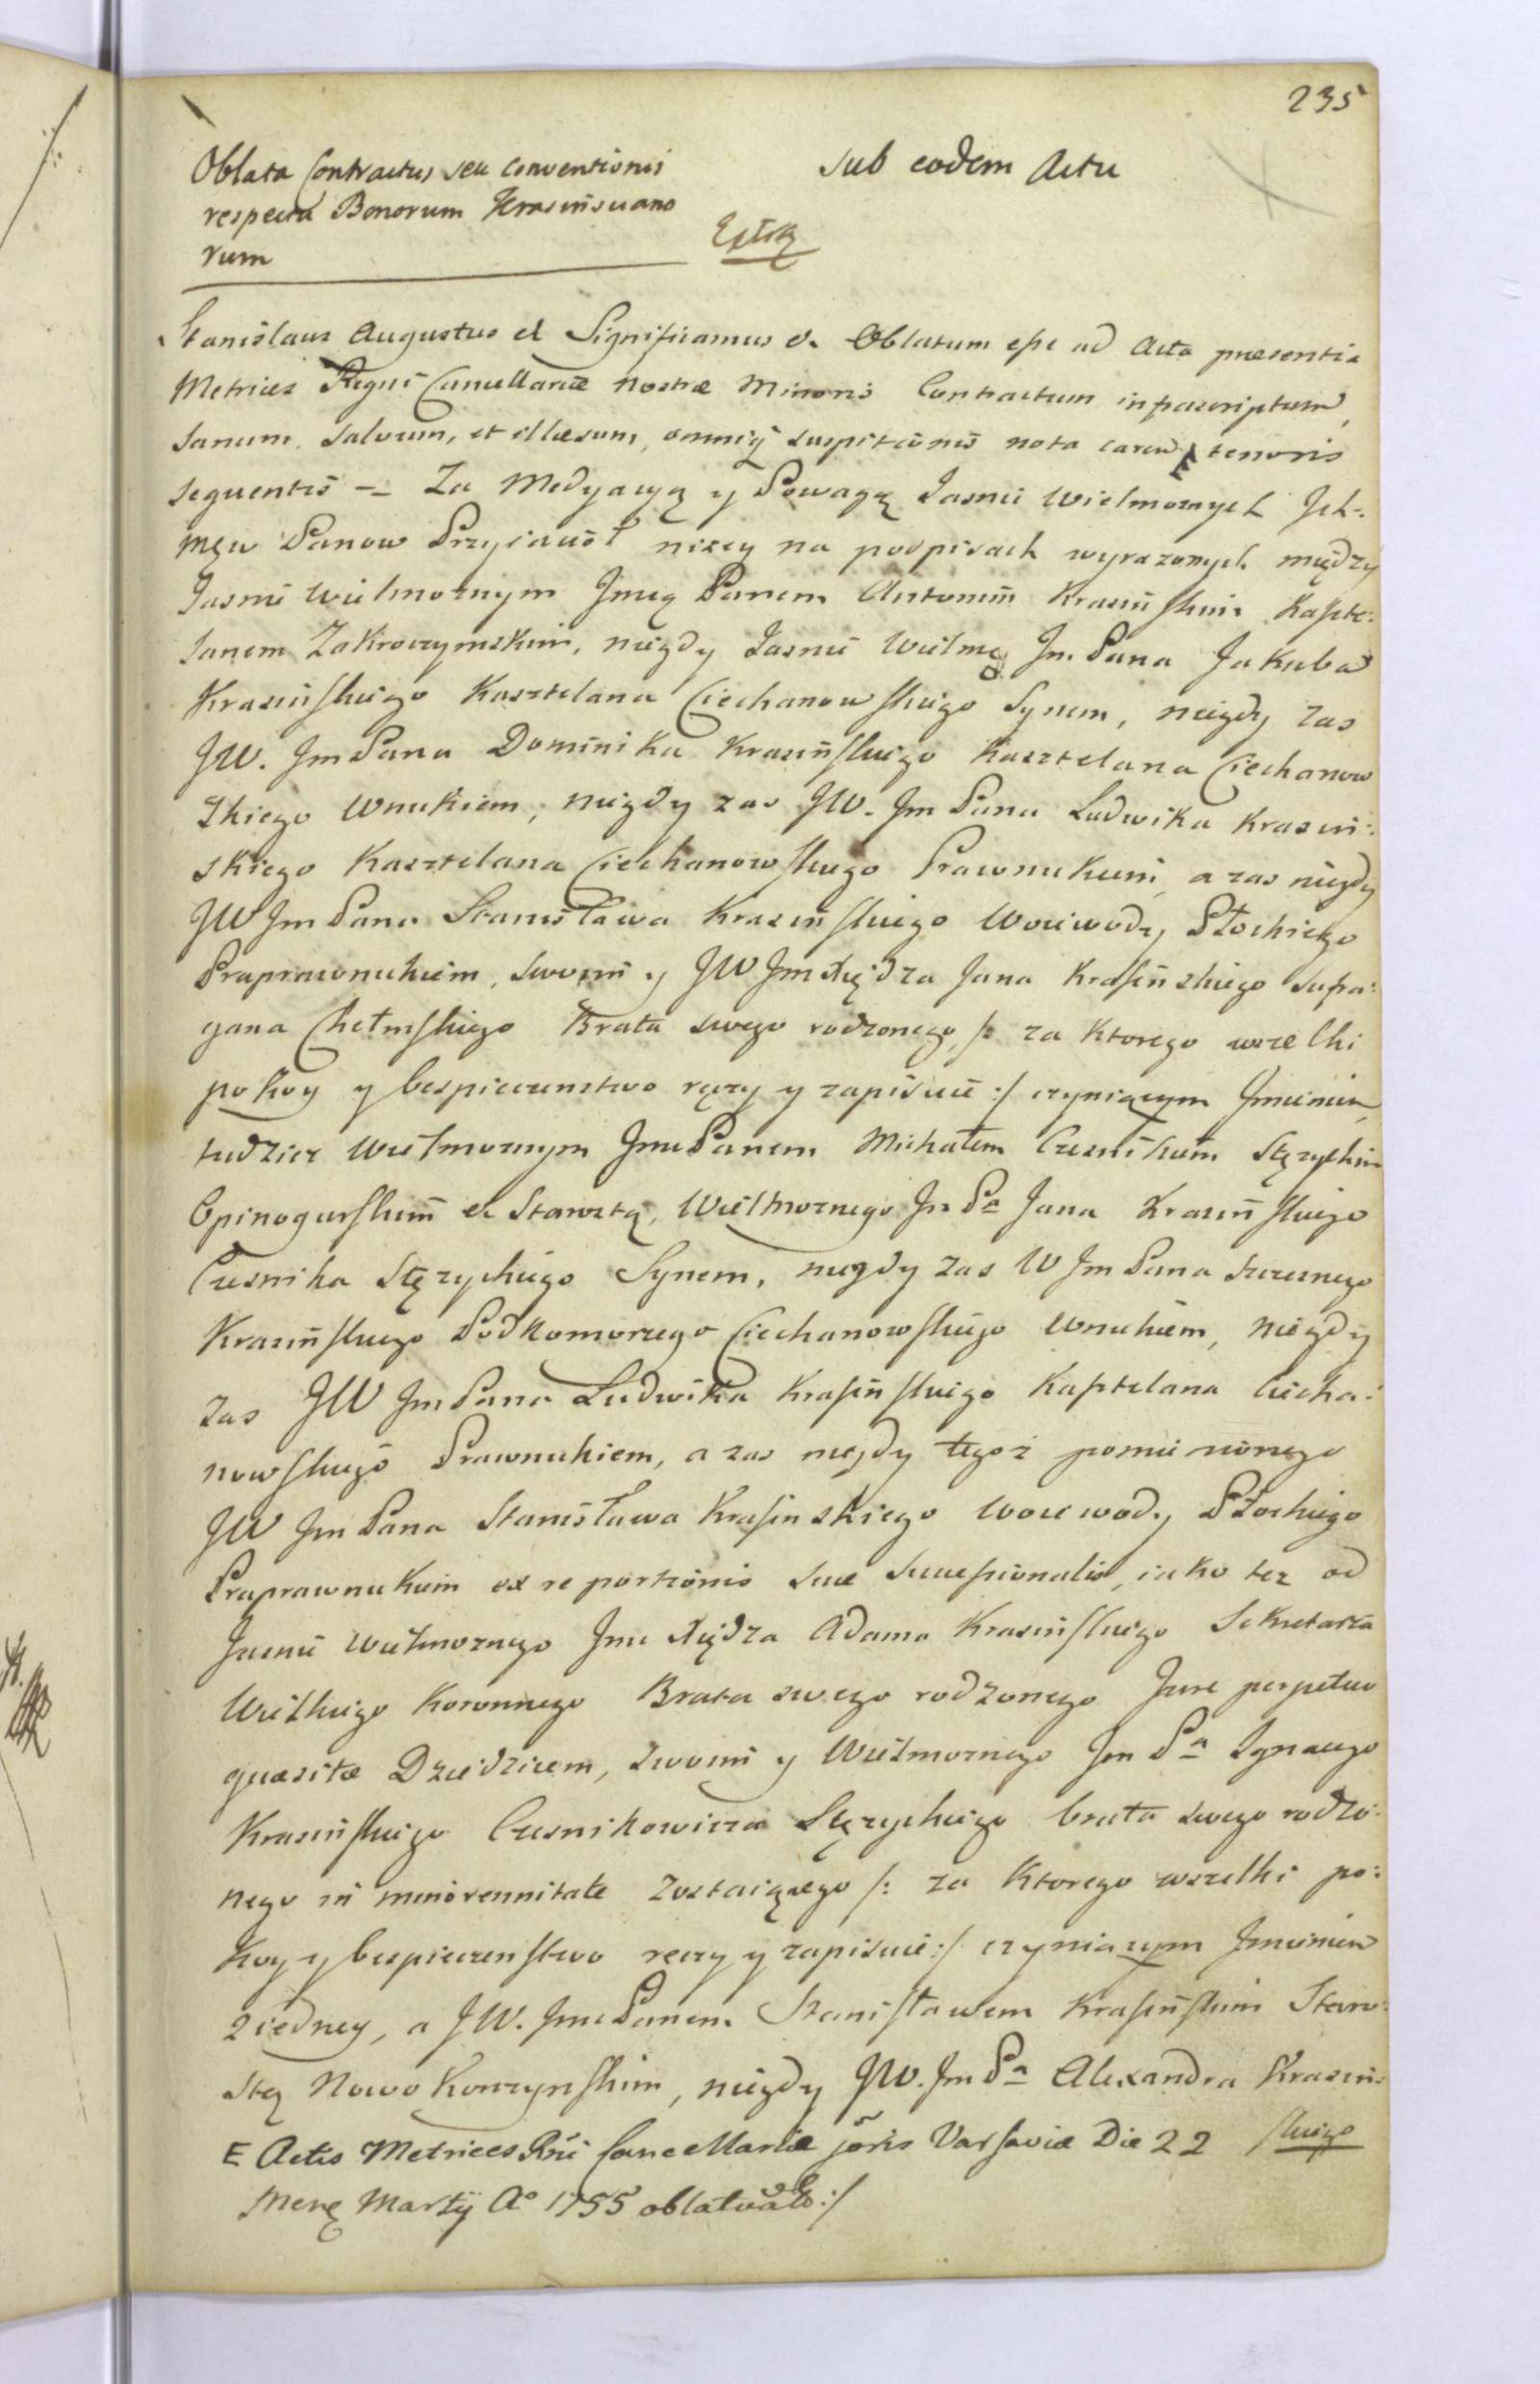 235
Oblata Contractus seu Conventionis
sub eodem Actu
respectu Bonorum Krasinsciano
rum
Stanislaus Augustus et Significamus et. Oblatum esse ad Acta praesentia
Metrices Regni Cancellariae nostrae Minoris Contractum infrascriptum,
sanum, salvum, et illaesum, omniq suspitionis nota caren E tenoris
sequentis -- Za Medyacyą y Powagą Jasnie Wielmoznych Ich-
męw Panow Przyiaciół nizey na podpisach wyrazonych między
Jasnie Wielmoznym Jmcą Panem Antonim Krasińskim Kaszte:
lanem Zakroczymskim, niegdy Jasnie Wielmo Jm Pana Jakuba
Krasińskiego Kasztelana Ciechanowskiego Synem, niegdy zas
JW. Jm Pana Dominika Krasińskiego Kasztelana Ciechanow
skiego Wnukiem, niegdy zas JW. Jm Pana Ludwika Krasiń:
skiego Kasztelana Ciechanowskiego Prawnukiem, a zas niegdy
JW Jm Pana Stanisława Krasińskiego Woiewody Płockiego
Praprawnukiem, swoim y JW Jm Xiędza Jana Krasińskiego Sufra:
gana Chełmskiego Brata swego rodzonego, /: za ktorego wszelki
pokoy y bespieczenstwo ręczy y zapisuie :/ czyniącym Jmieniem,
tudziez Wielmoznym Jmc Panem Michałem Czesnikiem Stęzyckim
Opinogurskim et Starostą, Wielmoznego Jm Pa Jana Krasińskiego
Czesnika Stęzyckiego Synem, niegdy zas W Jm Pana Szczesnego
Krasińskiego Podkomorzego Ciechanowskiego Wnukiem, niegdy
zas JW Jm Pana Ludwika Krasińskiego Kasztelana Ciecha:
nowskiego Prawnukiem, a zas niegdy tegoż pomienionego
JW Jm Pana Stanisława Krasinskiego Woiewody Płockiego
Praprawnukiem ex re portionis suae successionalis, iako tez od
Jasnie Wielmoznego Jmc Xiędza Adama Krasińskiego Sekretarza
Wielkiego Koronnego Brata swego rodzonego Jure perpetuo
quaesitae Dziedzicem, swoim y Wielmoznego Jm Pa Ignacego
Krasińskiego Czesnikowicza Stęzyckiego brata swego rodzo:
nego in minorennitate zostaiącego /: za Ktorego wszelki po:
koy y bespieczenstwo reczy y zapisuie :/ czyniącym Jmieniem
z iedney, a JW. Jmc Panem Stanisławem Krasińskim Staro:
stą Nowo Korczynskim, niegdy JW. Jm Pa Alexandra Krasiń:
skiego
E Actis Metrices Rni Cancellariae joris Varsaviae Die 22
Mens Martij Ao 1755